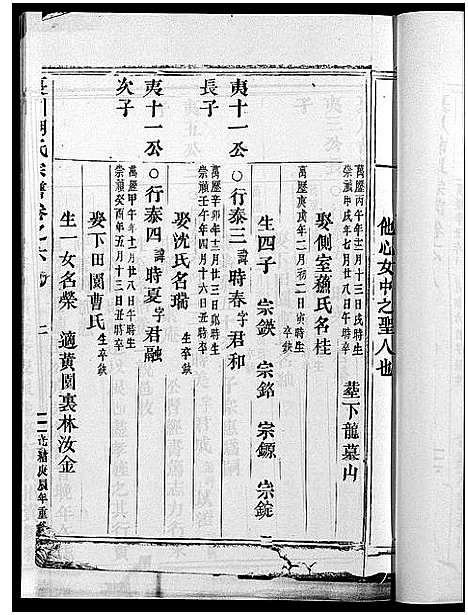 他心女中之聖人也
萬歷丙午年十二月十三日戌時生
崇禎甲戌年七月廿八日午時卒
葬下龍墓山
娶側室蘓氏名桂
萬歷庚戌年二月初二日寅時生
卒缺
生四子 宗鍈 宗銘 宗鎵 宗錠
夷十一公長子
○行泰三諱時春字君和
萬歷辛卯年十二月廿三日卯時生
崇禎壬午年四月十六日亥時卒
娶沈氏名瑞
生卒缺
夷十一公次子
○行泰四諱時夏字君融
萬歷甲午年十一月廿八日午時生
崇禎癸酉年五月十三日丑時卒
娶下田園曹氏
生卒缺
生一女名榮 適黃園裏林汝金
氏宗譜卷之六
二
庚辰年重